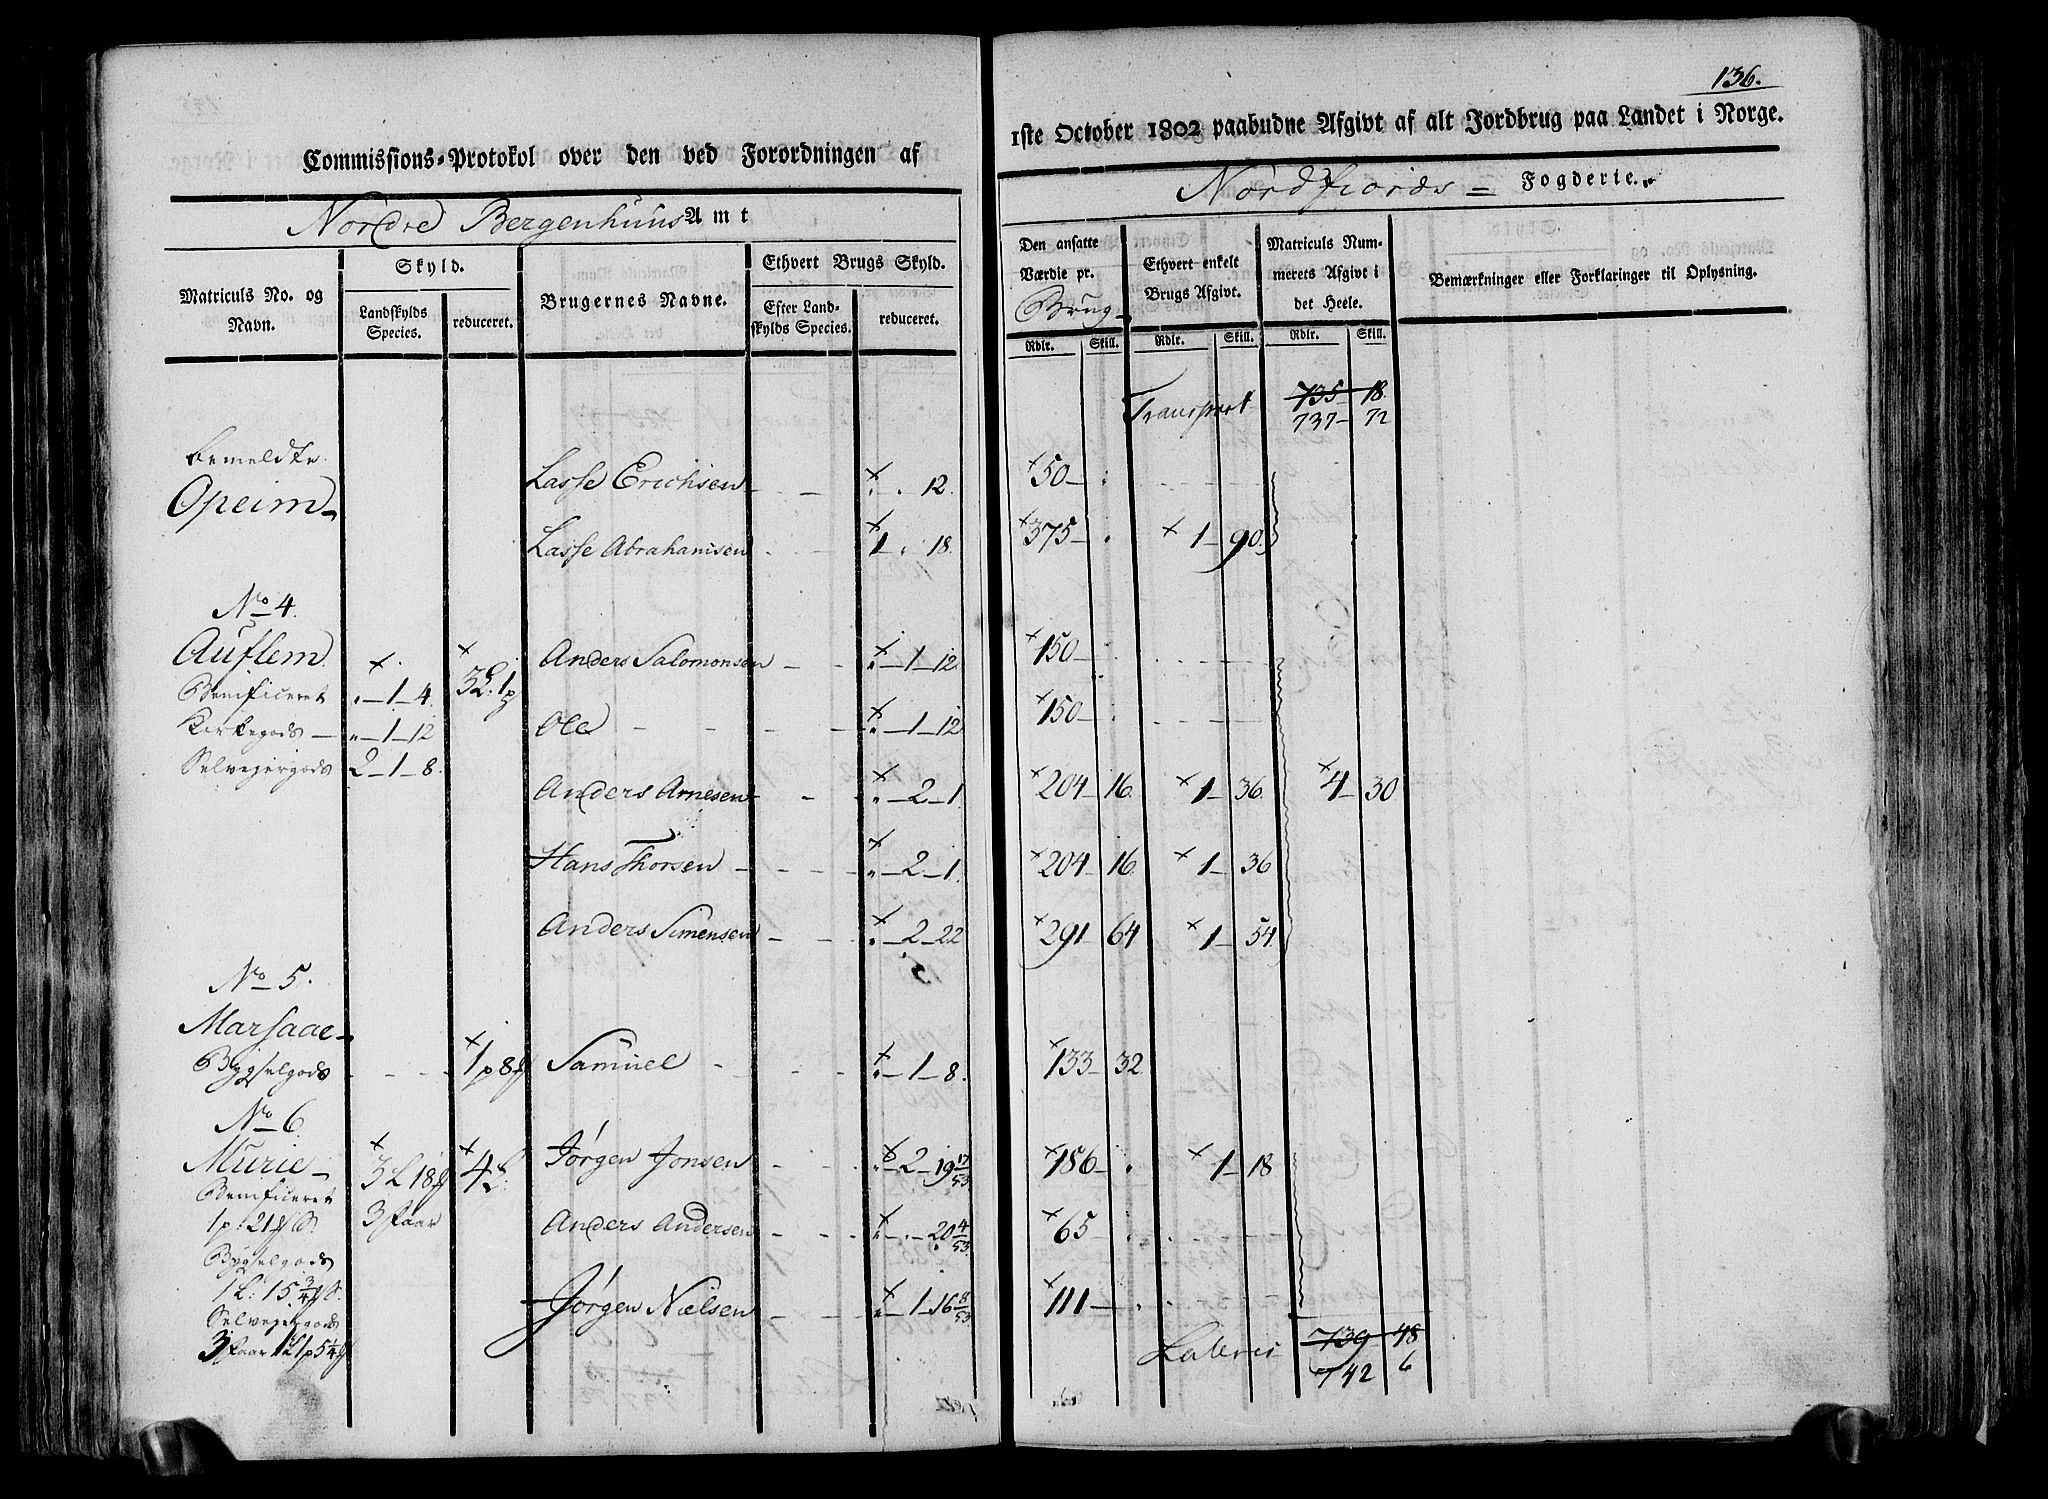 136.
Commissions-Protokol over den ved Forordningen af
1ste October 1802 paabudne Afgivt af alt Jordbrug paa Landet i Norge.
Nordre Bergenhuus Amt
Nordfiords = Fogderie.
Matriculs No. og Navn.
Skyld.
Landskylds Species.
reduceret.
Brugernes Navne.
Ethvert Brugs Skyld.
Efter Landskylds Species.
reduceret.
Den ansatte Værdie pr. Brug
Ethvert enkelt Brugs Afgivt.
Matriculs Nummerets Afgivt i det Heele.
Bemærkninger eller Forklaringer til Oplysning.
Rdlr. Skill. Rdlr. Skill. Rdlr. Skill.
Transport 735 18.
737 72
bemeldte
Opeim
Lasse Erichsen 12. 50
Lasse Abrahamsen 1 . 18. 375 1 90.
No 4.
Auflem 3 L. 1 p Anders Salomonsen 1 12 150
Benificeret 1 4
Kirkegods 1 12 Ole 1 12 150
Selvejergods 2 1 8.
Anders Arnesen 2 1 204 16 1 36. 4 30
Hans Thorsen 2 1. 204 16 1 36
Anders Simensen 2 22 291 64 1 54
No 5.
Marsaae
Bygselgods 1 p 8 Samuel 1 8. 133 32
No 6.
Murie 3 L 18 4 L. Jørgen Jonsen 2 19 17/53 186 1 18
Benificeret 3 Faar
1 p: 21 Anders Andersen 20 4/53 65
Bygselgods
1 L: 15 3/4
Selvejergods Jørgen Nielsen 1 16 8/53 111
3 Faar 1 L 1 p 5 1/4
Lateris 739 48
742 6